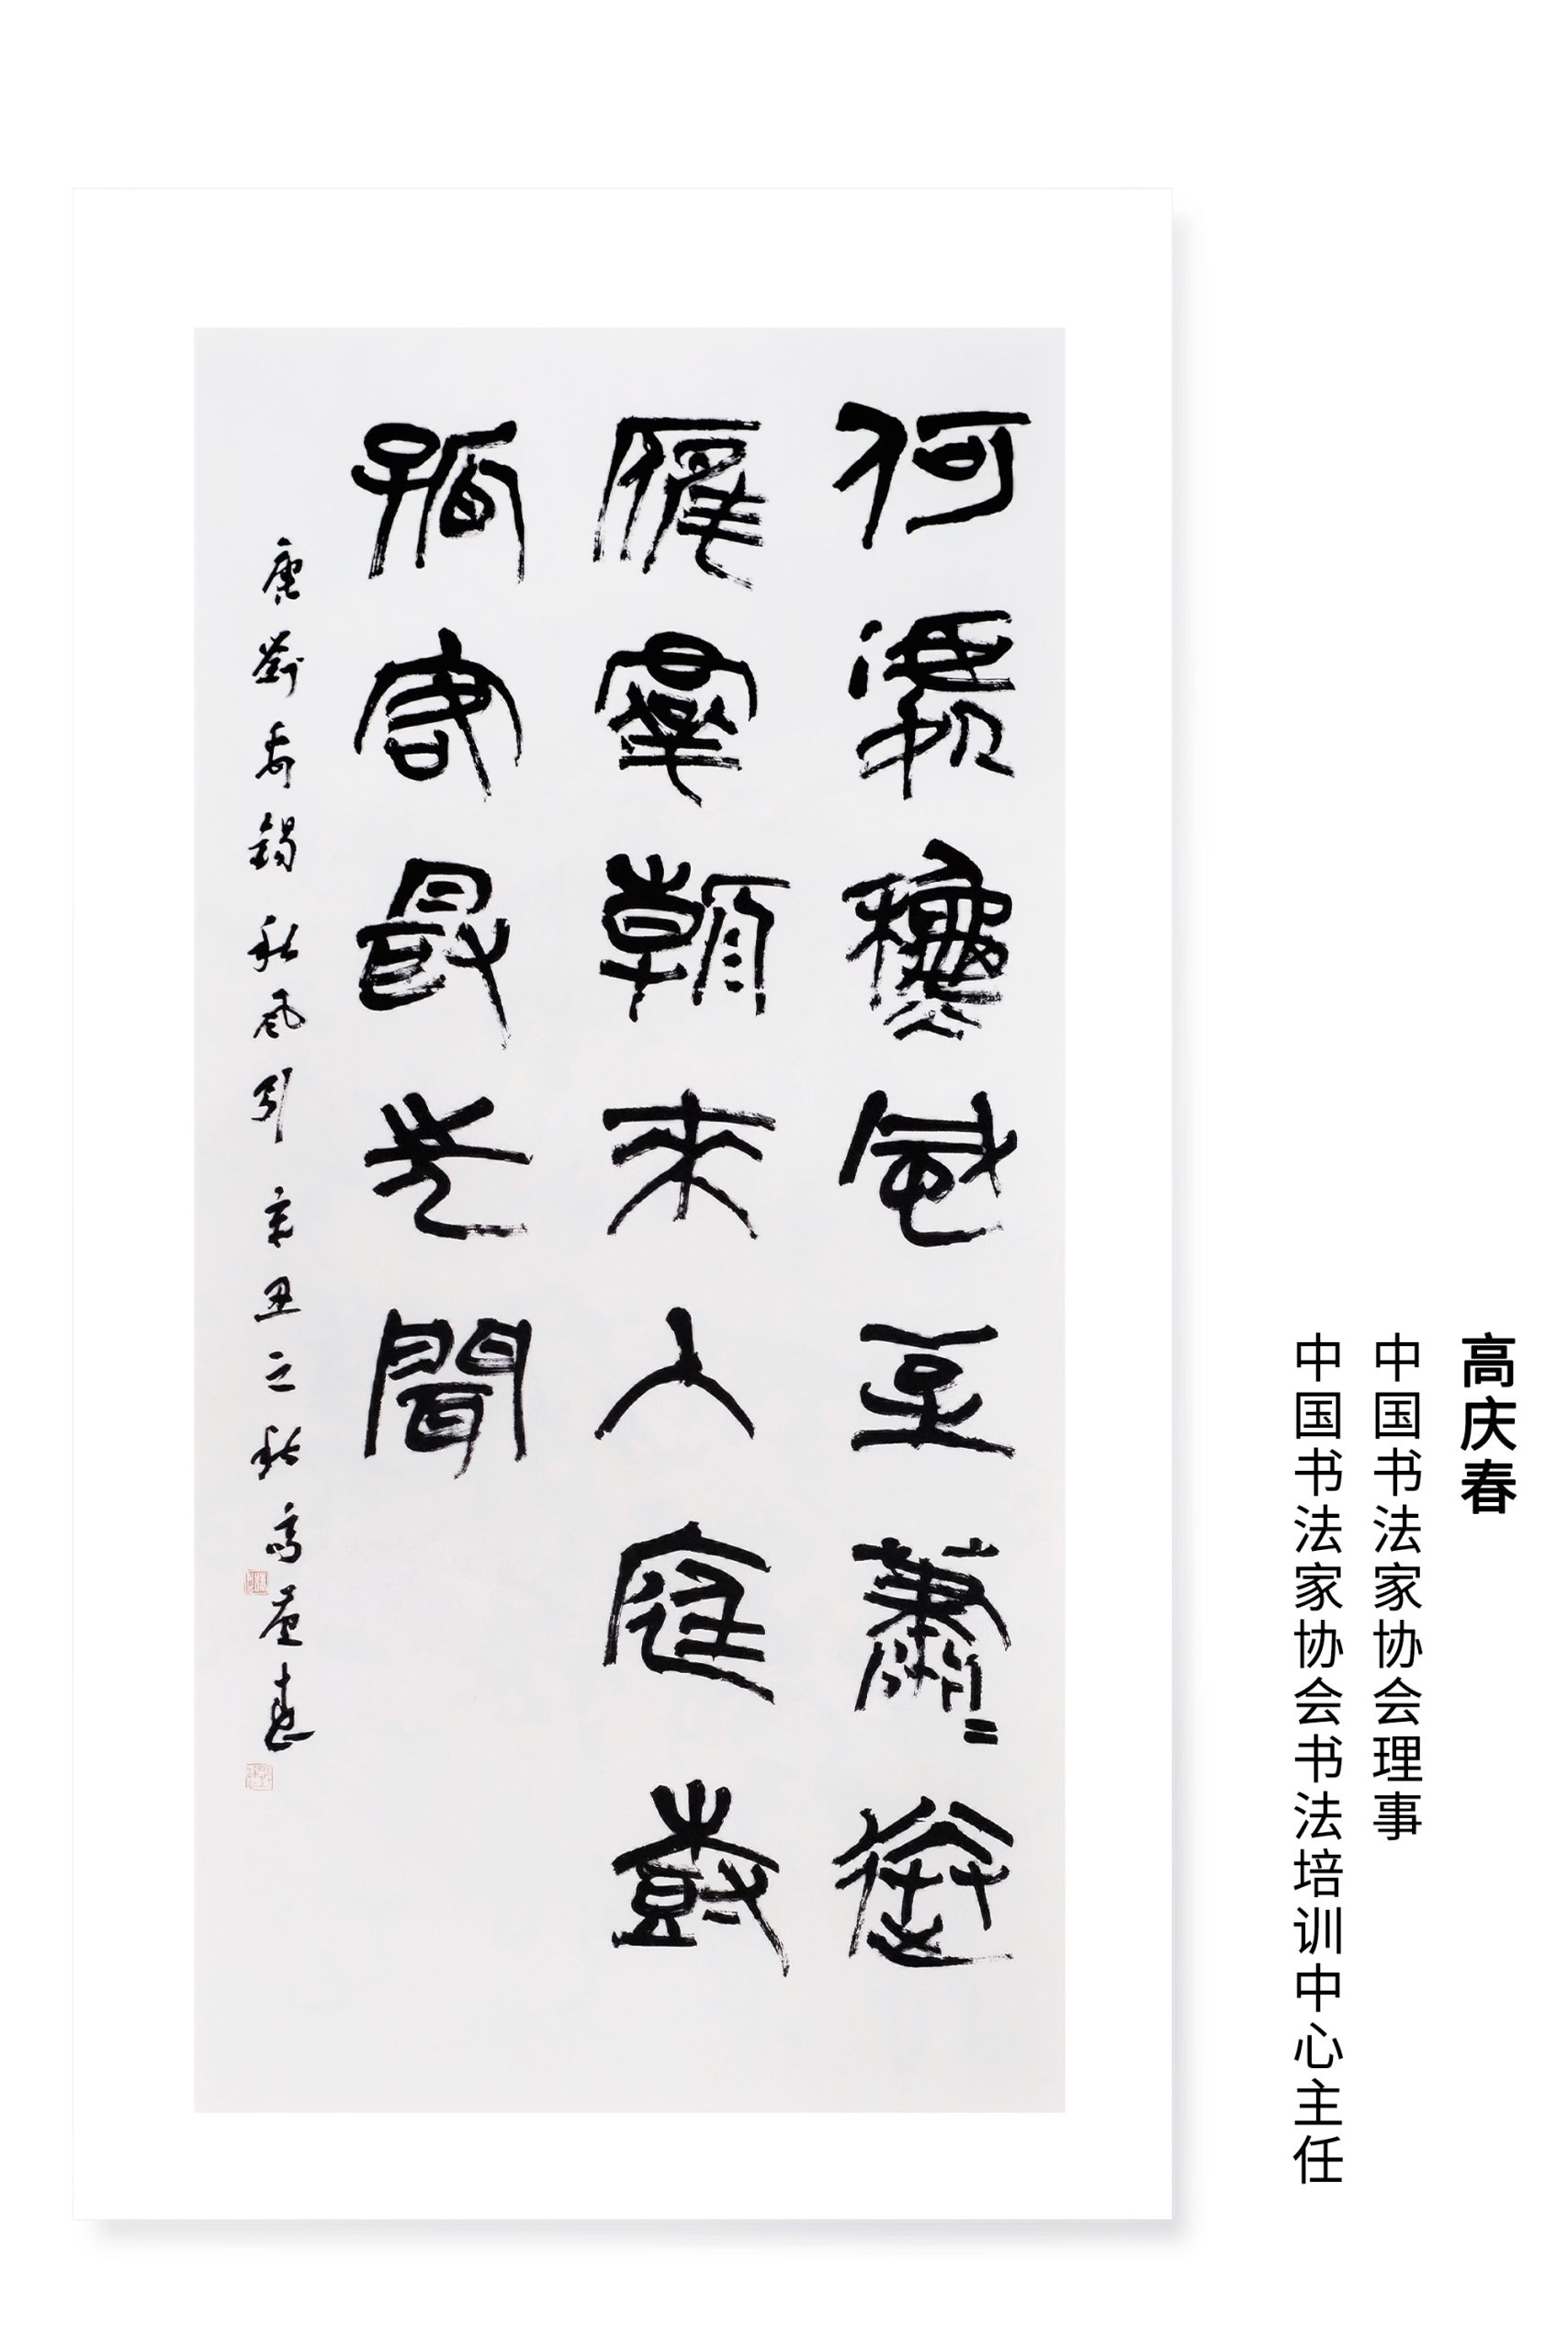 高庆春
中国书法家协会理事
中国书法家协会书法培训中心主任
何處龝風至蕭〻送
雁羣朝來入庭樹
孤客最先聞
唐劉禹錫秋風引 辛丑之秋 高慶春